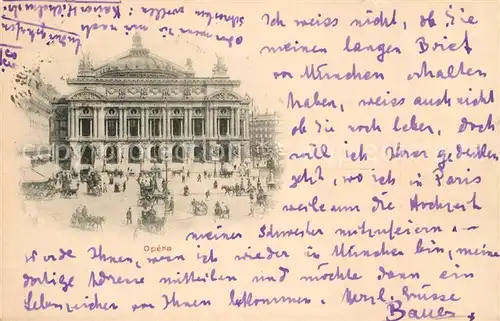 Ich weiss nicht, ob Sie
meinen langen Brief
von München erhalten
haben, weiss auch nicht
ob Sie noch leben, doch
will ich Ihrer gedenken
jetzt, wo ich in Paris
weile um die Hochzeit
meiner Schwester mitzufeiern. –
Werde Ihnen, wenn ich wieder in München bin, meine
dortige Adresse mitteilen und möchte dann ein
Lebenszeichen von Ihnen bekommen. Herzl. Grüsse
Bauer.
Opéra
aber wenn Sie mir
schreiben wollen:
Ludwigshafen